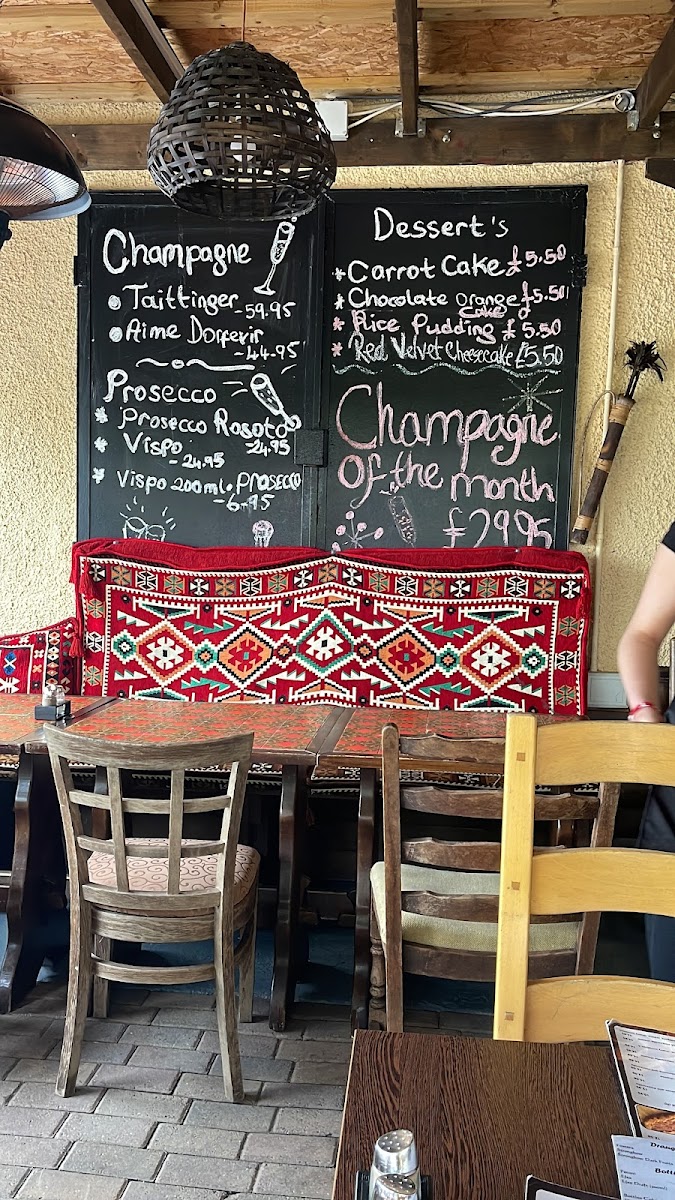 Champagne
Taittinger -59.95
Aime Dorfevir
-44.95
Prosecco
Prosecco Rosato
24.95
Vispo
-24.95
Vispo 200ml. Prosecco
-6.95
Dessert's
*Carrot Cake £5.50
*Chocolate orange £5.50
cake
*Rice Pudding £5.50
*Red Velvet Cheesecake £5.50
Champagne
of the month
£29.95